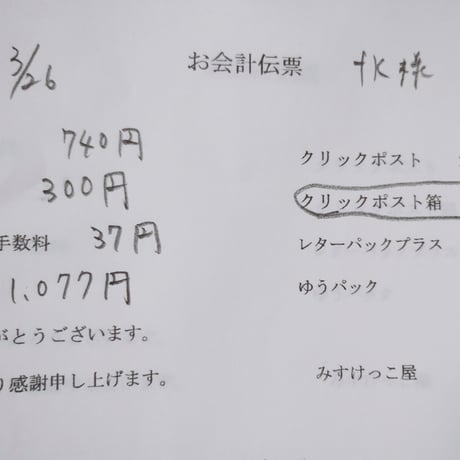 3/26
お会計伝票 TK様
740円
クリックポスト
300円
クリックポスト箱
手数料 37円
レターパックプラス
1,077円
ゆうパック
がとうございます。
り感謝申し上げます。
みすけっこ屋